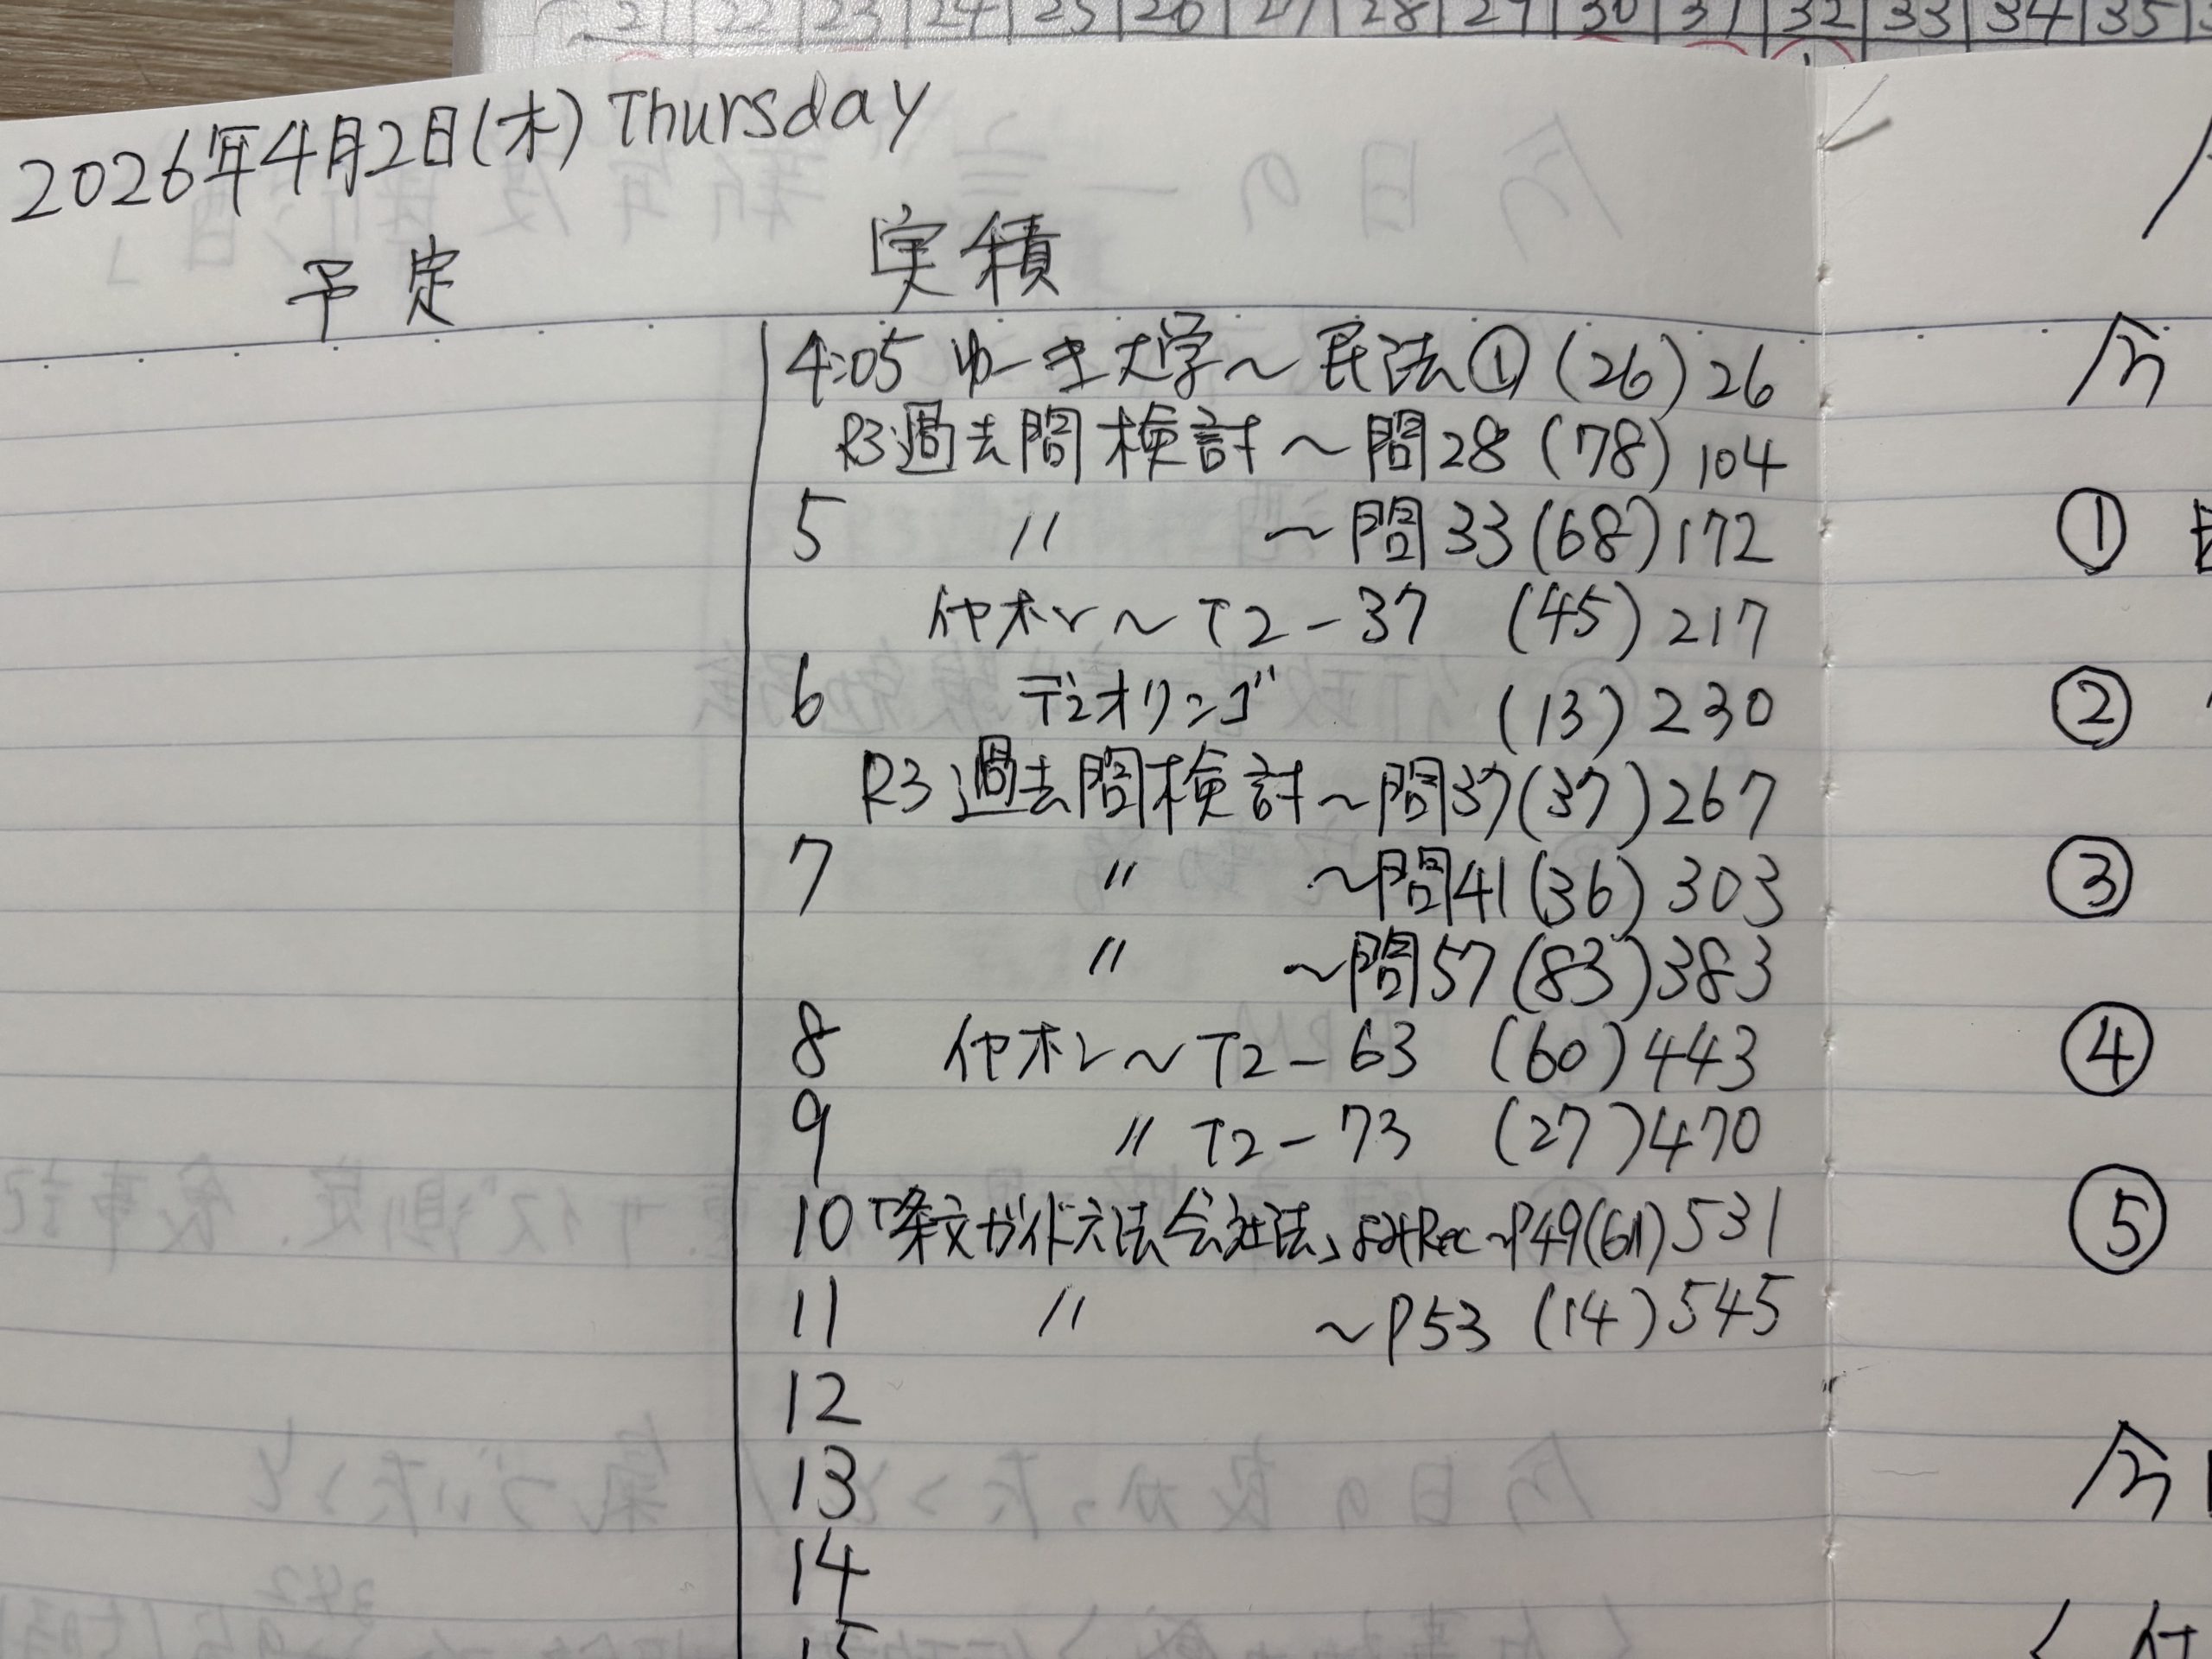 21 22 23 24 25 26 27 28 29 30 31 32 33 34 35
2026年4月2日(木) Thursday
予定 実積
4:05 ゆーき大学～民法① (26) 26
R3過去問検討～問28 (78) 104
5 〃 ～問33 (68) 172
イヤホン～T2-37 (45) 217
6 デュオリンゴ (13) 230
R3過去問検討～問37 (37) 267
7 〃 ～問41 (36) 303
〃 ～問57 (83) 383
8 イヤホン～T2-63 (60) 443
9 〃 T2-73 (27) 470
10 「条文ガイド六法会社法」 Rec～P49 (61) 531
11 〃 ～P53 (14) 545
12
13
14
15
今
①
②
③
④
⑤
今